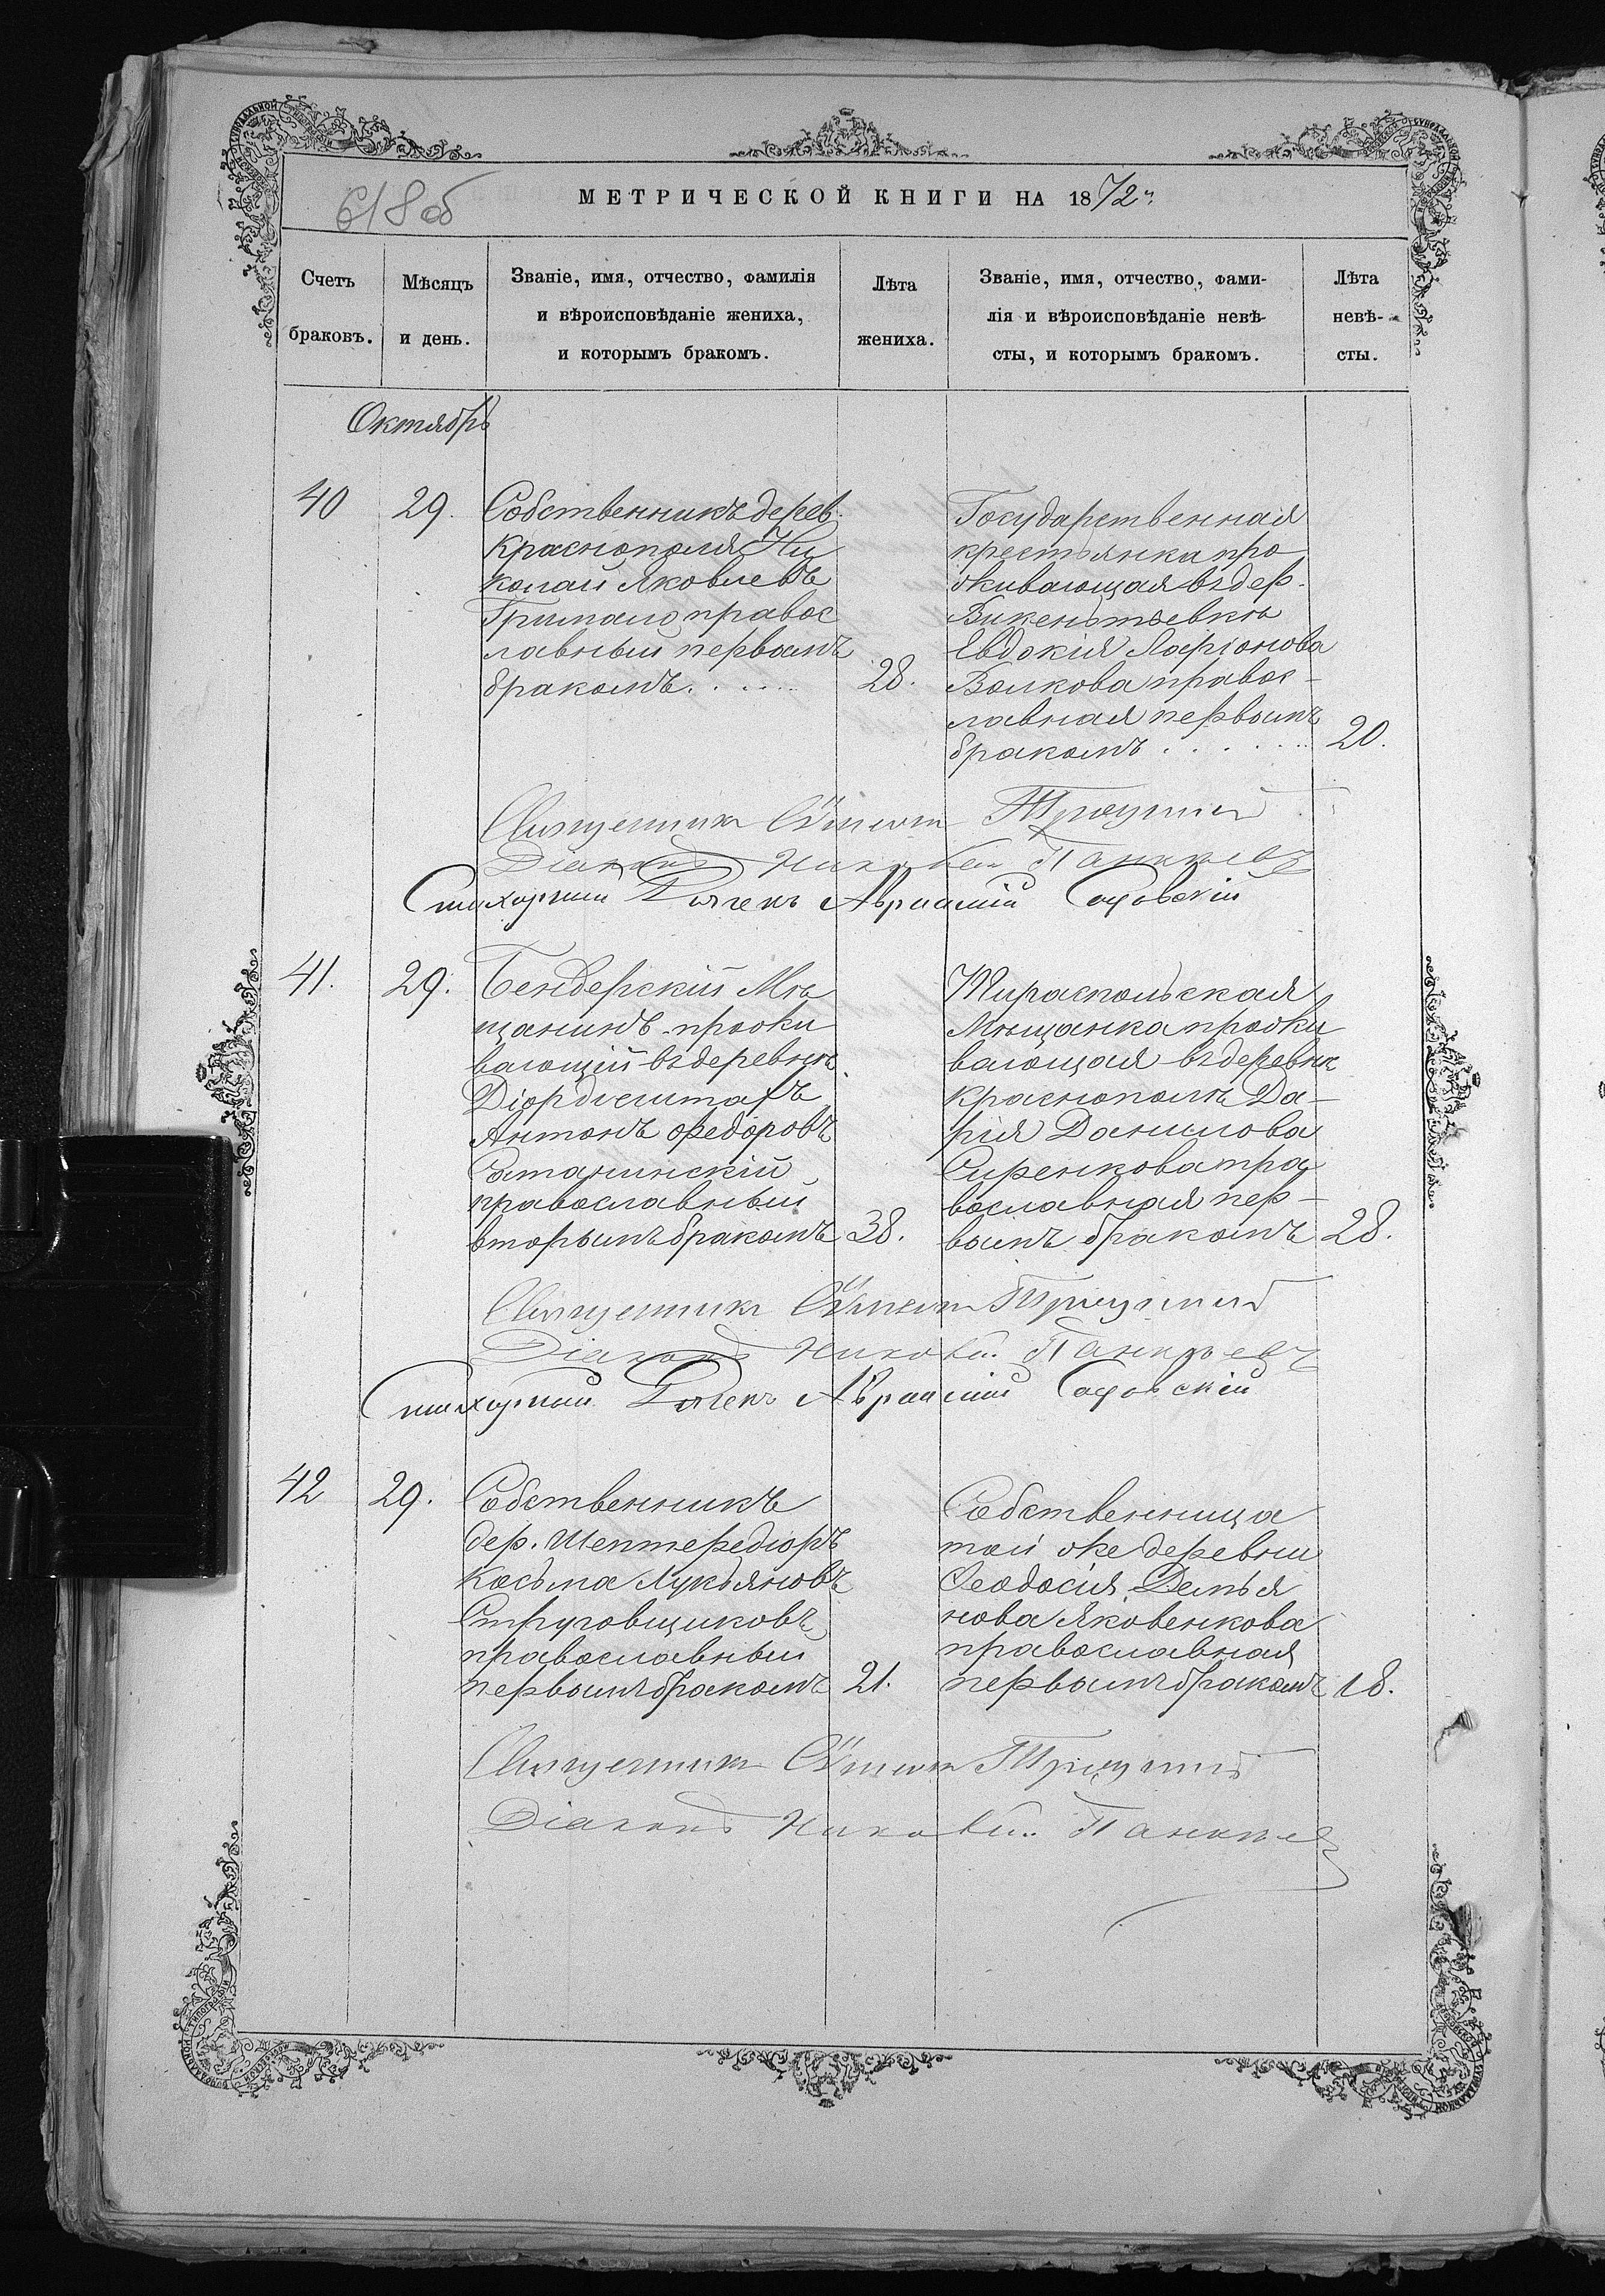 618 об
МЕТРИЧЕСКОЙ КНИГИ НА 1872 г.
Счетъ браковъ.
Мѣсяцъ и день.
Званіе, имя, отчество, фамилія
и вѣроисповѣданіе жениха,
и которымъ бракомъ.
Лѣта жениха.
Званіе, имя, отчество, фами-
лія и вѣроисповѣданіе невѣ-
сты, и которымъ бракомъ.
Лѣта невѣ-
сты.
Октябрь
40 29.
Собственникъ дерев.
Краснополя Ни
колай Яковлевъ
Гримало правос
лавный первымъ
бракомъ. . . . . . 28.
Государственная
крестьянка про
живающая въ дер.
Викентьевкѣ
Евдокія Ларіонова
Волкова правос-
лавная первымъ
бракомъ . . . . . . 20.
Священникъ Троицкій
Діаконъ Николай
Стихарный Дьячекъ Авраамій Садовскій
41. 29.
Бендерскій Мѣ
щанинъ прожи
вающій въ деревнѣ
Антонъ Федоровъ
православный
вторымъ бракомъ 38.
Тираспольская
Мѣщанка прожи
вающая въ деревнѣ
Краснополѣ Да-
рія Данилова
Сиренкова пра
вославная пер-
вымъ бракомъ 28.
Священникъ Троицкій
Діаконъ Николай
Стихарный Дьячекъ Авраамій Садовскій
42 29.
Собственникъ
дер. Шептередіоръ
Косьма Лукьяновъ
Струговщиковъ
православный
первымъ бракомъ 21.
Собственница
той же деревни
Феодосія Демья
нова Яковенкова
православная
первымъ бракомъ 18.
Священникъ Троицкій
Діаконъ Николай